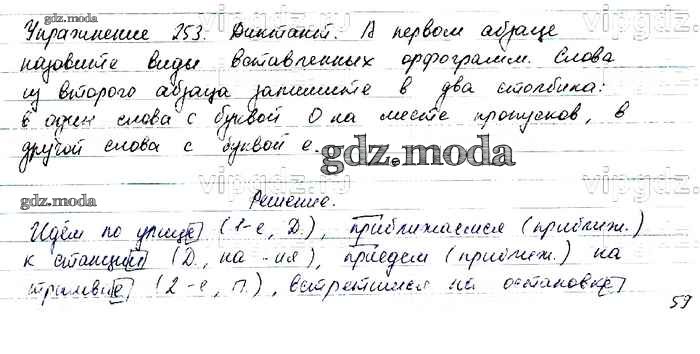 gdz.moda
Упражнение 253. Диктант. В первом абзаце
назовите виды вставленных орфограмм. Слова
из второго абзаца запишите в два столбика:
в один слова с буквой О на месте пропусков, в
другой слова с буквой е.
gdz.moda
gdz.moda
Решение.
Идём по улице (1-е, Д.), приближаемся (приближ.)
к станции (Д., на -ия), приедем (приближ.) на
трамвае (2-е, П.), встретимся на остановке
59
vipgdz.ru
vipgdz.ru
vipgdz.ru
vipgdz.ru